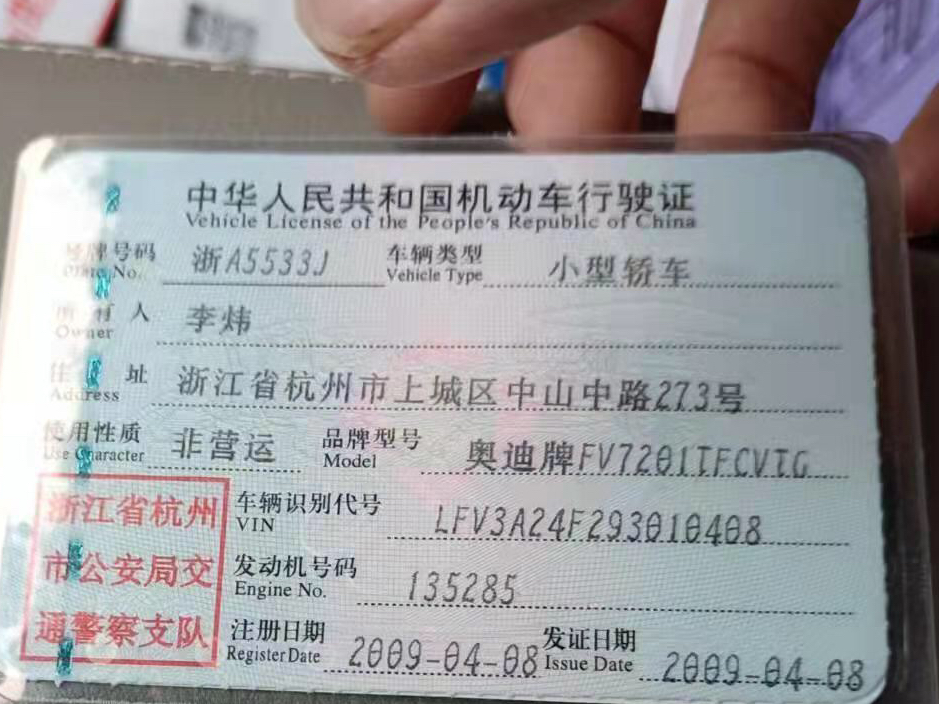 中华人民共和国机动车行驶证
Vehicle License of the People's Republic of China
号牌号码 浙A5533J 车辆类型 小型轿车
Plate No. Vehicle Type
所有人 李炜
Owner
住址 浙江省杭州市上城区中山中路273号
Address
使用性质 非营运 品牌型号 奥迪牌FV7201TFCVTG
Use Character Model
浙江省杭州 车辆识别代号 LFV3A24F293010408
VIN
市公安局交 发动机号码 135285
Engine No.
通警察支队 注册日期 2009-04-08 发证日期 2009-04-08
Register Date Issue Date